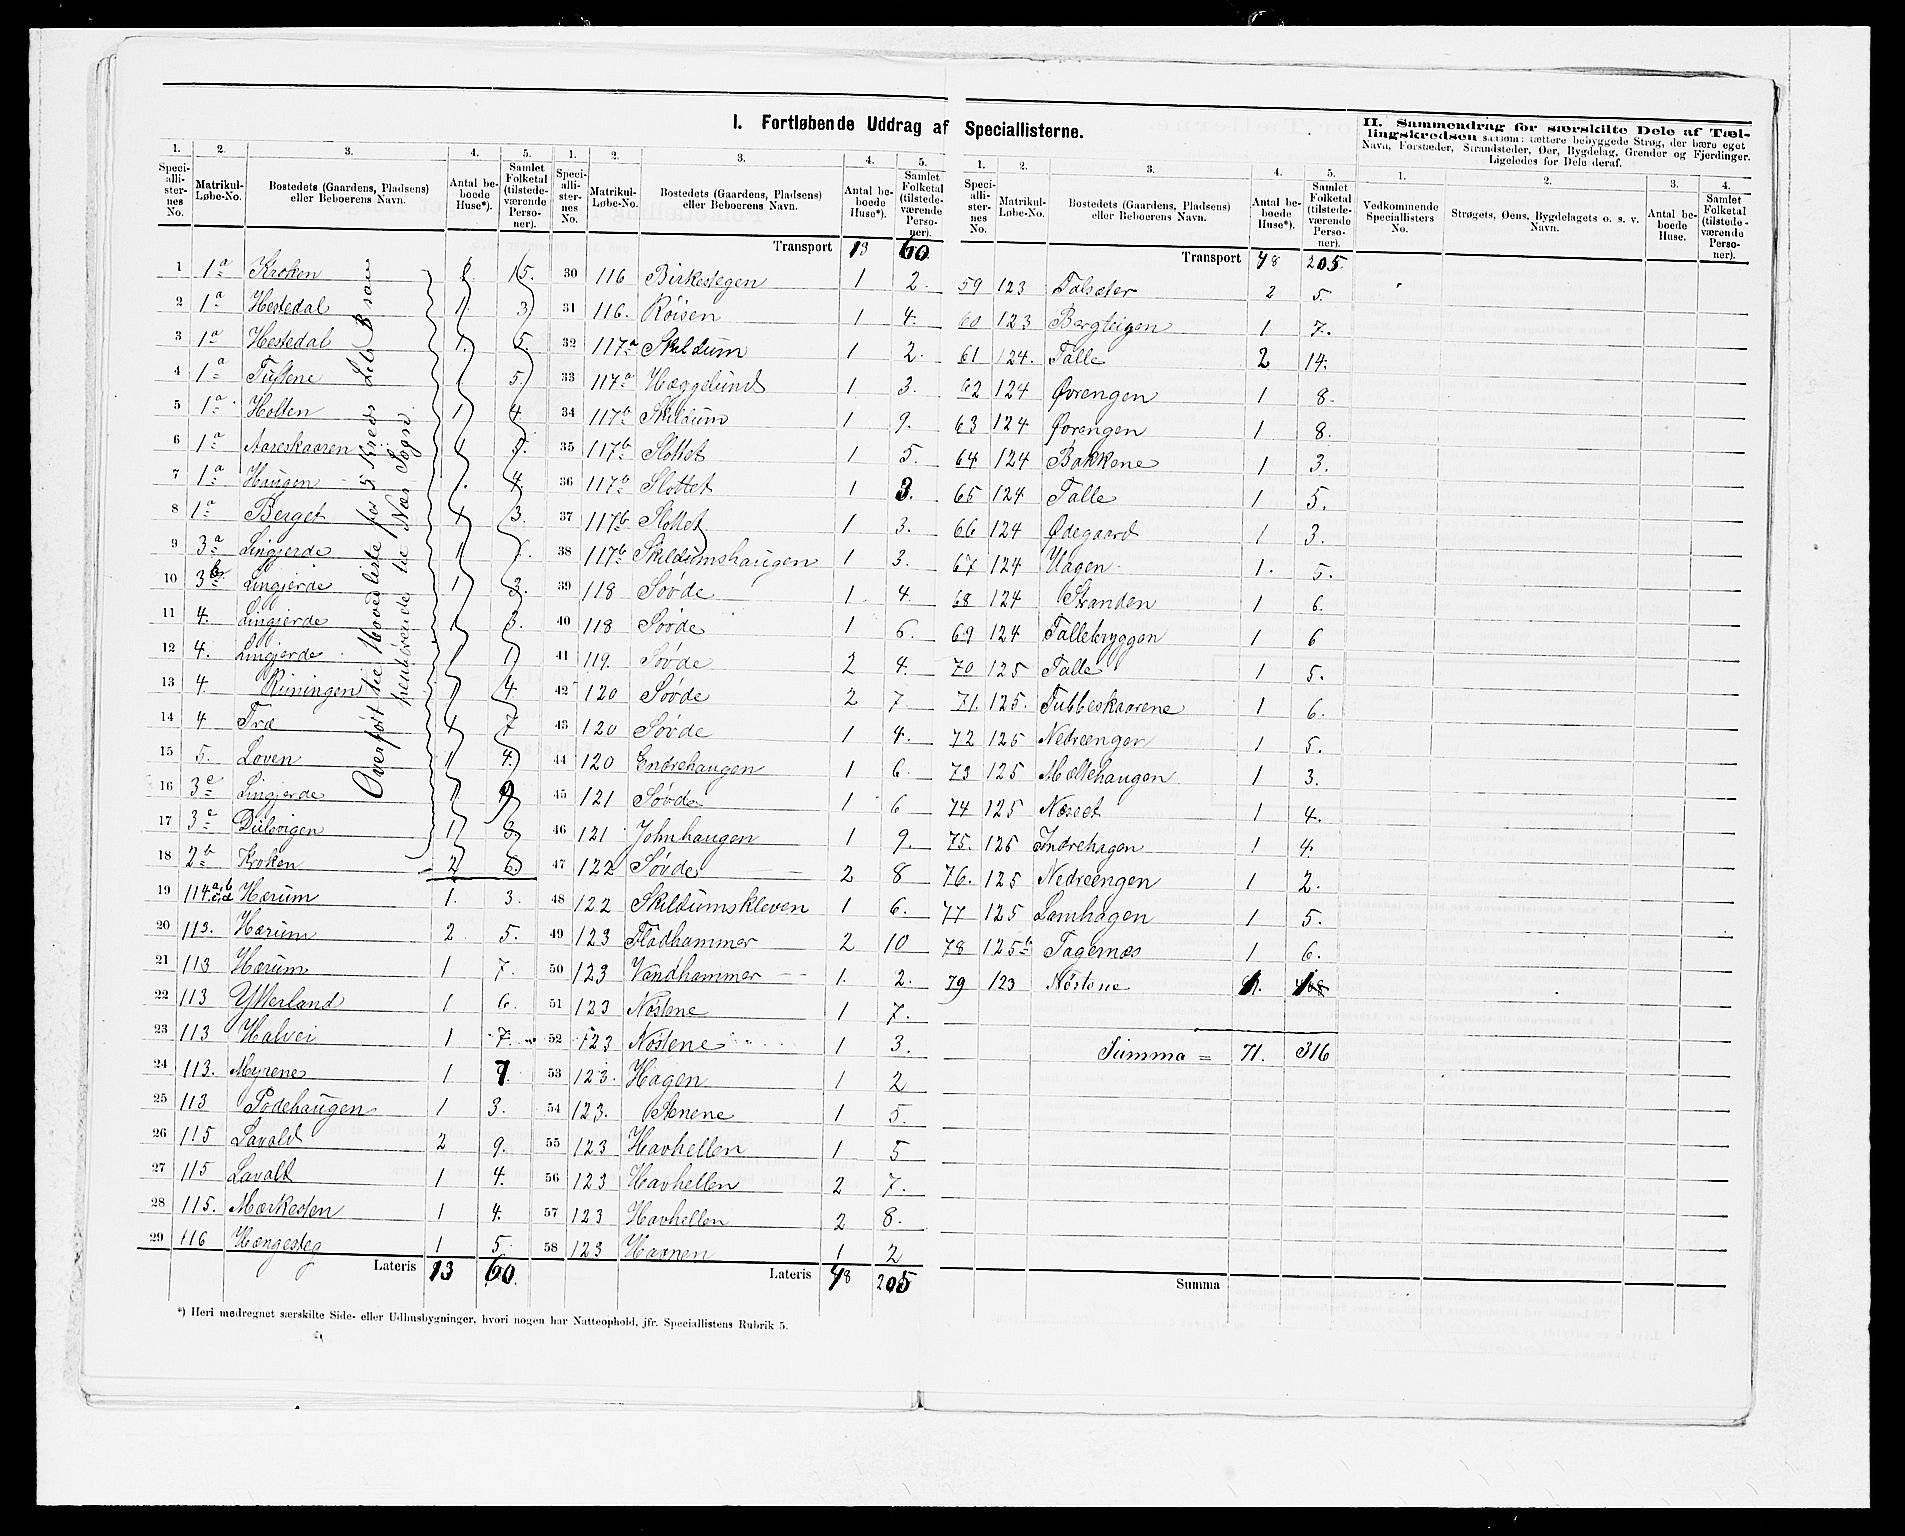 I. Fortløbende Uddrag af Speciallisterne.
II. Sammendrag for særskilte Dele af Tæl-
lingskredsen saasom: tættere bebyggede Strøg, der bære eget
Navn, Forstæder, Strandsteder, Øer, Bygdelag, Grender og Fjerdinger.
Ligeledes for Dele deraf.
1. 2. 3. 4. 5. 1. 2. 3. 4. 5. 1. 2. 3. 4. 5. 1. 2. 3. 4.
Speciallisternes No. Matrikul-Løbe-No. Bostedets (Gaardens, Pladsens) eller Beboerens Navn. Antal beboede Huse*). Samlet Folketal (tilstedeværende Personer).
Speciallisternes No. Matrikul-Løbe-No. Bostedets (Gaardens, Pladsens) eller Beboerens Navn. Antal beboede Huse*). Samlet Folketal (tilstedeværende Personer).
Speciallisternes No. Matrikul-Løbe-No. Bostedets (Gaardens, Pladsens) eller Beboerens Navn. Antal beboede Huse*). Samlet Folketal (tilstedeværende Personer).
Vedkommende Speciallisters No. Strøgets, Øens, Bygdelagets o. s. v. Navn. Antal beboede Huse. Samlet Folketal (tilstedeværende Personer).
1 1a Kroken 15.
2 1a Hestedal 1. 3
3 1a Hestedal 1. 5.
4 1a Tuftene 1. 5.
5 1a Holten 1 4.
6 1a Aareskaaren 1 5.
7 1a Haugen 1. 4.
8 1a Berget 1 3.
9 3a Lingjerde 1
10 3b Lingjerde 1 3.
11 4. Lingjerde 1 3.
12 4. Lingjerde 1 1
13 4. Runingen 1 4
14 4 Træ 1 7
15 5. Loven 1 4.
16 3e Lingjerde 1 9
17 3e Dulsvigen 1 3.
18 2b Kroken 2 6.
Overført til Hovedliste for 5 Kreds
henhørende til Næs Sogn
19 114a,b c,d Hærum 1. 3.
20 113. Hærum 2 5.
21 113 Hærum 1 7.
22 113 Ytterland 1 6.
23 113 Halvei 1 7.
24 113. Myrene 1 7.
25 113 Podehaugen 1 3.
26 115 Lavold 2 9.
27 115 Lavold 1 4.
28 115. Mærkesten 1 4.
29 116 Hængesteg 1 5.
Lateris 13 60.
Transport 13 60
30 116 Birkestegen 1 2.
31 116. Røisen 1 4.
32 117a Skildum 1 2.
33 117a Hæggelund 1 3.
34 117b Skildum 1 9.
35 117b Slottet 1 5.
36 117b Slottet 1 3.
37 117b Slottet 1 3.
38 117b Skildumshaugen 1 3.
39 118 Søvde 1 4.
40 118 Søvde 1 6.
41 119. Søvde 2 4.
42 120 Søvde 2 7
43 120 Søvde 1 4.
44 120 Endrehaugen 1 6.
45 121 Søvde 1 6
46 121 Johnhaugen 1 9.
47 122 Søvde 2 8
48 122 Skildumskleven 1 6.
49 123 Fladhammer 2 10
50 123 Vandhammer 1. 2.
51 123 Nøstene 1 7.
52 123 Nøstene 1 3.
53 123. Hagen 1 2
54 123. Stenene 1 5.
55 123 Havhellen 1 5
56 123 Havhellen 2 7.
57 123 Havhellen 2 8.
58 123 Havnen 1 2
Lateris 48 205
Transport 48 205.
59 123 Talsæter 2 5.
60 123 Bergteigen 1 7.
61 124. Talle 2 14.
62 124 Øvrengen 1 8.
63 124 Øvrengen 1 8.
64 124 Bakkene 1 3.
65 124 Talle 1 5.
66 124 Ødegaard 1 3.
67 124 Hagen 1. 5.
68 124 Stranden 1 6.
69 124 Tallebryggen 1 6
70 125 Talle 1 5.
71. 125. Tubbeskaarene 1 6.
72 125 Nedreengen 1 5.
73 125 Moltehaugen 1 3.
74 125 Næsset 1 4.
75. 125 Indrehagen 1 4.
76. 125 Nedreengen 1 2.
77 125 Lamhagen 1 5.
78 125b Tagenæs 1 6.
79 123 Nøstene
Summa = 71. 316
Summa
*) Heri medregnet særskilte Side- eller Udhusbygninger, hvori nogen har Natteophold, jfr. Speciallistens Rubrik 5.